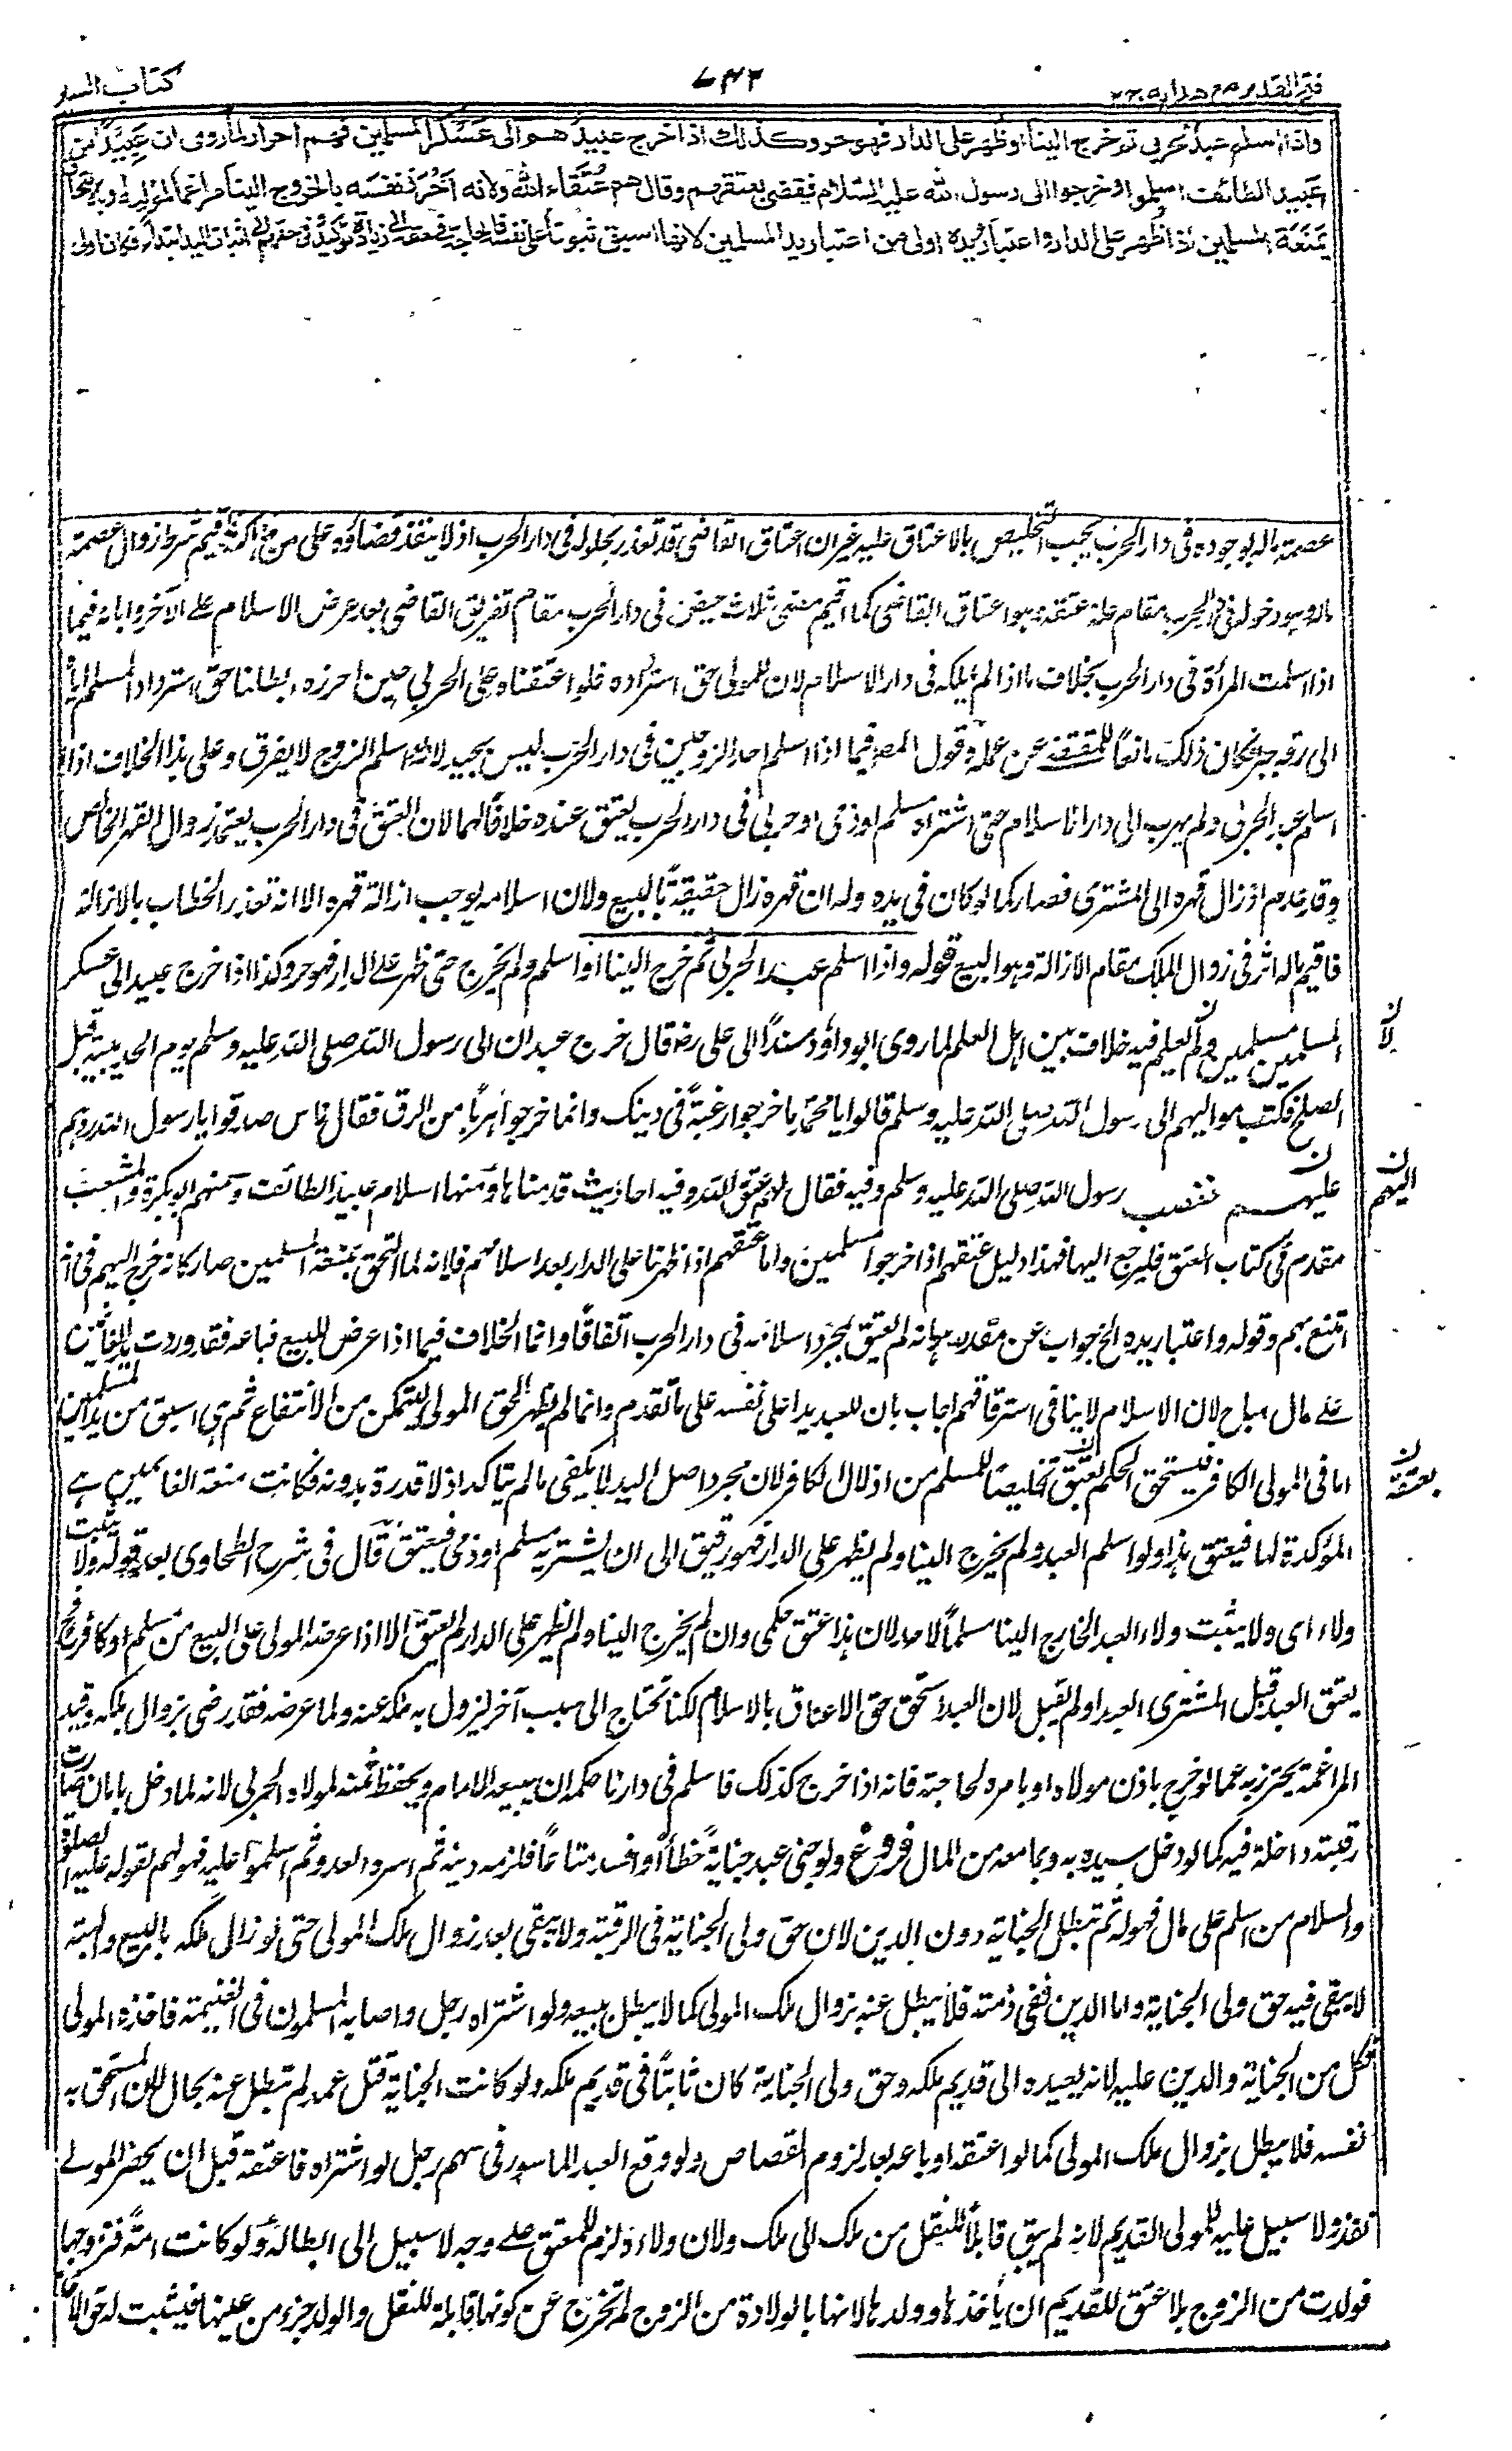 فتح القدير مع هدايه ج٢
٧٤٢
كتاب السير
واذا اسلم عبد لحربي ثم خرج الينا او ظهر على الدار فهو حر وكذلك اذا خرج عبيدهم الى عسكر المسلمين فهم احرار لما روى ان عبيدا من
عبيد الطائف اسلموا وخرجوا الى رسول الله عليه السلام فقضى بعتقهم وقال هم عتقاء الله ولانه احرز نفسه بالخروج الينا مراغما لمولاه وبالالتحاق
بمنعة المسلمين اذا ظهر على الدار واعتبار يده اولى من اعتبار يد المسلمين لانها اسبق ثبوتا على نفسه فالحاجة في حقه الى زيادة توكيد وفي حقهم الى اثبات اليد ابتداء فكان اولى
عصمة ماله بوجوده في دار الحرب يجب التخليص بالاعتاق عليه غير ان اعتاق القاضي قد تعذر بحلوله في دار الحرب اذ لا ينفذ قضاؤه على من ثمة فاقيم شرط زوال عصمة
ماله وهو دخوله في دار الحرب مقام علة عتقه وهو اعتاق القاضي كما اقيم مضي ثلاث حيض في دار الحرب مقام تفريق القاضي بعد عرض الاسلام على الآخر وابائه فيما
اذا اسلمت المرأة في دار الحرب بخلاف ما اذا لم يملكه في دار الاسلام لان للمولى حق استرداده فلو اعتقناه على الحربي حين احرزه ابطلنا حق استرداد المسلم اياه
الى رقه جبرا فكان ذلك مانعا للمقتضى عن عمله وقول المصـ فيما اذا اسلم احد الزوجين في دار الحرب ليس بجيد لانه لو اسلم الزوج لا يفرق وعلى هذا الخلاف اذا
اسلم عبد الحربي ولم يهرب الى دار الاسلام حتى اشتراه مسلم او ذمي او حربي في دار الحرب يعتق عنده خلافا لهما لان العتق في دار الحرب يعتمد زوال القهر الخاص
وقد عدم اذ زال قهره الى المشتري فصار كما لو كان في يده وله ان قهره زال حقيقة بالبيع ولان اسلامه يوجب ازالة قهره الا انه تعذر الخطاب بالازالة
فاقيم ما له اثر في زوال الملك مقام الازالة وهو البيع قوله واذا اسلم عبد الحربي ثم خرج الينا او اسلم ولم يخرج حتى ظهر على الدار فهو حر وكذا اذا خرج عبيد الى عسكر
المسلمين مسلمين ولم يعلم فيه خلاف بين اهل العلم لما روى ابوداؤد مسندا الى علي رض قال خرج عبدان الى رسول الله صلى الله عليه وسلم يوم الحديبية قبل
الصلح فكتب مواليهم الى رسول الله صلى الله عليه وسلم قالوا يا محمد ما خرجوا رغبة في دينك وانما خرجوا هربا من الرق فقال ناس صدقوا يا رسول الله ردهم
عليهم فغضب رسول الله صلى الله عليه وسلم وفيه فقال هم عتق الله وفيه احاديث قدمناها ومنها اسلام عبيد الطائف ومنهم ابوبكرة والمنبعث
مقدم في كتاب العتق فليرجع اليها فهذا دليل عتقهم اذا خرجوا مسلمين واما عتقهم اذا ظهرنا على الدار بعد اسلامهم فلانه لما التحق بمنعة المسلمين صار كانه خرج اليهم في انه
امتنع بهم وقوله واعتبار يده الخ جواب عن مقدر هو انه لم يعتق بمجرد اسلامه في دار الحرب اتفاقا وانما الخلاف فيما اذا عرض للبيع فباعه فقد وردت يد الغانمين
على مال مباح لان الاسلام لا ينافي استرقاقهم اجاب بان للعبد يدا على نفسه على ما تقدم وانما لم يظهر لحق المولى ليتمكن من الانتفاع ثم هي اسبق من يد المسلمين
اما في المولى الكافر فيستحق الحكم بعتق تخليصا للمسلم من اذلال الكافر لان مجرد اصل اليد لا يكفي ما لم يتاكد اذ لا قدرة بدونه فكانت منعة الغانمين هي
المؤكدة لها فيعتق هذا ولو اسلم العبد ولم يخرج الينا ولم يظهر على الدار فهو رقيق الى ان يشتريه مسلم او ذمي فيعتق قال في شرح الطحاوي بعد قوله ولا يثبت
ولاء اى ولا يثبت ولاء العبد الخارج الينا مسلما لاحد لان هذا عتق حكمي وان لم يخرج الينا ولم يظهر على الدار لم يعتق الا اذا عرضه المولى على البيع من مسلم او كافر فح
يعتق العبد قبل المشتري البيع او لم يقبل لان العبد استحق حق الاعتاق بالاسلام لكنا نحتاج الى سبب آخر ليزول به ملكه عنه ولما عرضه فقد رضي بزوال ملكه وقيد
المراغمة يحترز به عما لو خرج باذن مولاه او بامره لحاجته فانه اذا خرج كذلك فاسلم في دارنا حكمه ان يبيعه الامام ويحفظ ثمنه لمولاه الحربي لانه لما دخل بامان صارت
رقبته داخلة فيه كما لو دخل سيده به وبما معه من المال فروع ولو جنى عبد جناية خطأ او افسد متاعا فلزمه دينه ثم اسره العدو ثم اسلموا عليه فهو لهم لقوله عليه الصلوة
والسلام من اسلم على مال فهو له ثم تبطل الجناية دون الدين لان حق ولى الجناية في الرقبة ولا يبقى بعد زوال ملك المولى حتى لو زال ملكه بالبيع والهبة
لا يبقى فيه حق ولى الجناية واما الدين ففي ذمته فلا يبطل عنه بزوال ملك المولى كما لا يبطل ببيعه ولو اشتراه رجل واصابه المسلمون في الغنيمة فاخذه المولى
فكل من الجناية والدين عليه لانه يعيده الى قديم ملكه وحق ولى الجناية كان ثابتا في قديم ملكه ولو كانت الجناية قتل عمد لم تبطل عنه بحال لان المستحق به
نفسه فلا يبطل بزوال ملك المولى كما لو اعتقه او باعه بعد لزوم القصاص ولو وقع العبد الماسور في سهم رجل لو اشتراه فاعتقه قبل ان يحضر المولى
نفذ ولا سبيل عليه للمولى القديم لانه لم يبق قابلا للنقل من ملك الى ملك ولان ولاءه لزم للمعتق على وجه لا سبيل الى ابطاله ولو كانت امة فزوجها
فولدت من الزوج بلا عتق للقديم ان يأخذها وولدها لانها بالولادة من الزوج لم تخرج عن كونها قابلة للنقل والولد جزء من عينها فيثبت له حق الاخذ
لان
اليهم
بعتقه